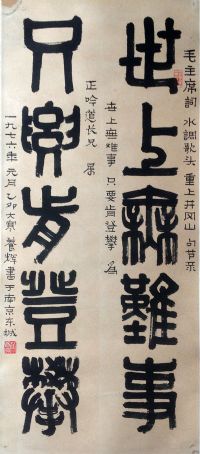 毛主席詞 水調歌头 重上井冈山
世上無難事
世上無難事 只要肯登攀 為
正吟道长兄
只要肯登攀
一九七六年元月乙卯大寒 書于南京东城